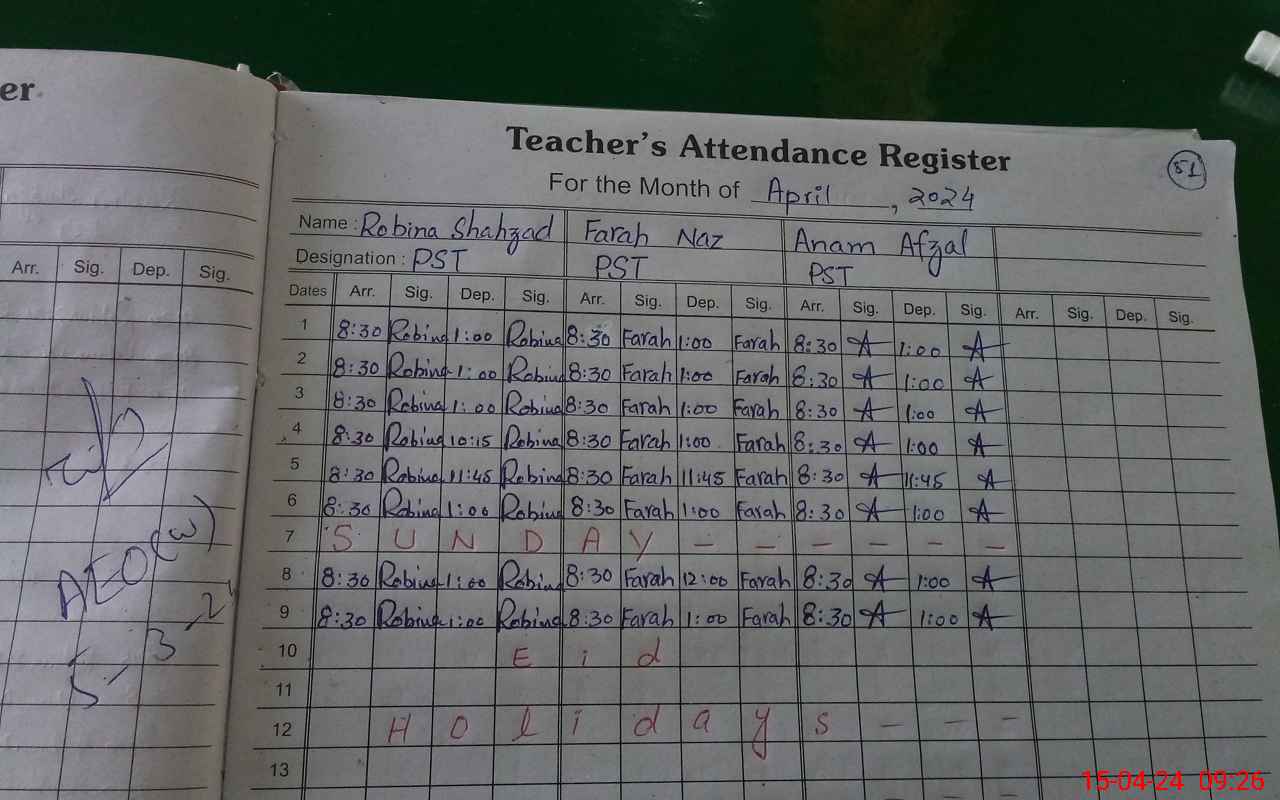 er
Arr. Sig. Dep. Sig.
AEO(w)
Teacher's Attendance Register
51
For the Month of April, 2024
Name : Robina Shahzad Farah Naz Anam Afzal
Designation : PST PST PST
Dates Arr. Sig. Dep. Sig. Arr. Sig. Dep. Sig. Arr. Sig. Dep. Sig. Arr. Sig. Dep. Sig.
1 8:30 Robina 1:00 Robina 8:30 Farah 1:00 Farah 8:30 A 1:00 A
2 8:30 Robina 1:00 Robina 8:30 Farah 1:00 Farah 8:30 A 1:00 A
3 8:30 Robina 1:00 Robina 8:30 Farah 1:00 Farah 8:30 A 1:00 A
4 8:30 Robina 10:15 Robina 8:30 Farah 1:00 Farah 8:30 A 1:00 A
5 8:30 Robina 11:45 Robina 8:30 Farah 11:45 Farah 8:30 A 11:45 A
6 8:30 Robina 1:00 Robina 8:30 Farah 1:00 Farah 8:30 A 1:00 A
7 S U N D A Y - - - - - -
8 8:30 Robina 1:00 Robina 8:30 Farah 12:00 Farah 8:30 A 1:00 A
9 8:30 Robina 1:00 Robina 8:30 Farah 1:00 Farah 8:30 A 1:00 A
10 E i d
11
12 H o l i d a y s - - -
13
15-04-24 09:26